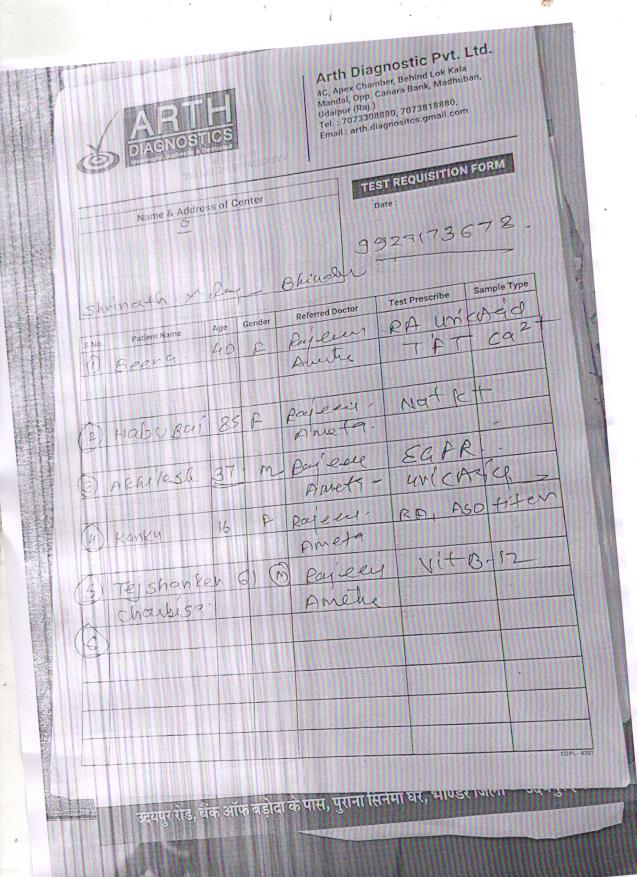 ARTH
DIAGNOSTICS
Arth Diagnostic Pvt. Ltd.
4C, Apex Chamber, Behind Lok Kala
Mandal, Opp. Canara Bank, Madhuban,
Udaipur (Raj.)
Tel. : 7073308880, 7073818880,
Email : arth.diagnositcs.gmail.com
TEST REQUISITION FORM
Name & Address of Center
Date :
9929173678.
Shrinath
S.No. Patient Name Age Gender Referred Doctor Test Prescribe Sample Type
1 40 F Rajeev RA Uric Acid
Ameta TFT Ca2+
2 Habu Bai 85 F Rajeev Na+ K+
Ameta
3 Akhilesh 37 M Rajeev
Ameta Uric Acid
4 Kanku 16 F Rajeev RA, ASO titer
Ameta
5 Tejshanker 61 M Rajeev Vit B-12
Choubisa Ameta
6
COPL-4701
उदयपुर रोड, बैंक ऑफ बड़ोदा के पास, पुराना सिनेमा घर,